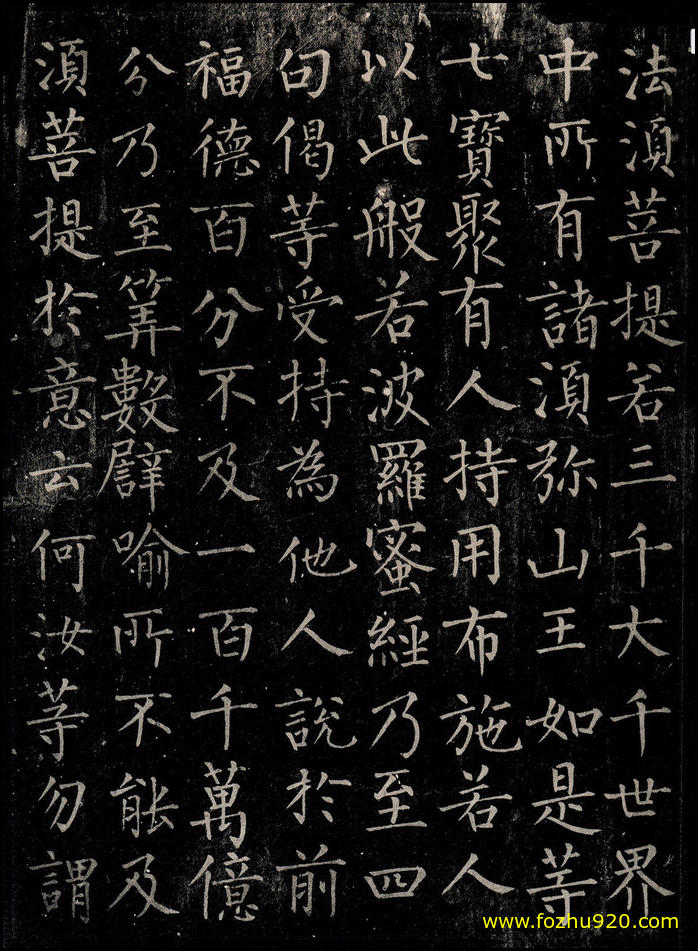 法湏菩提若三千大千世界
中所有諸湏弥山王如是等
七寶聚有人持用布施若人
以此般若波羅蜜經乃至四
句偈等受持為他人說於前
福德百分不及一百千萬億
分乃至筭數譬喻所不能及
湏菩提於意云何汝等勿謂
www.fozhu920.com